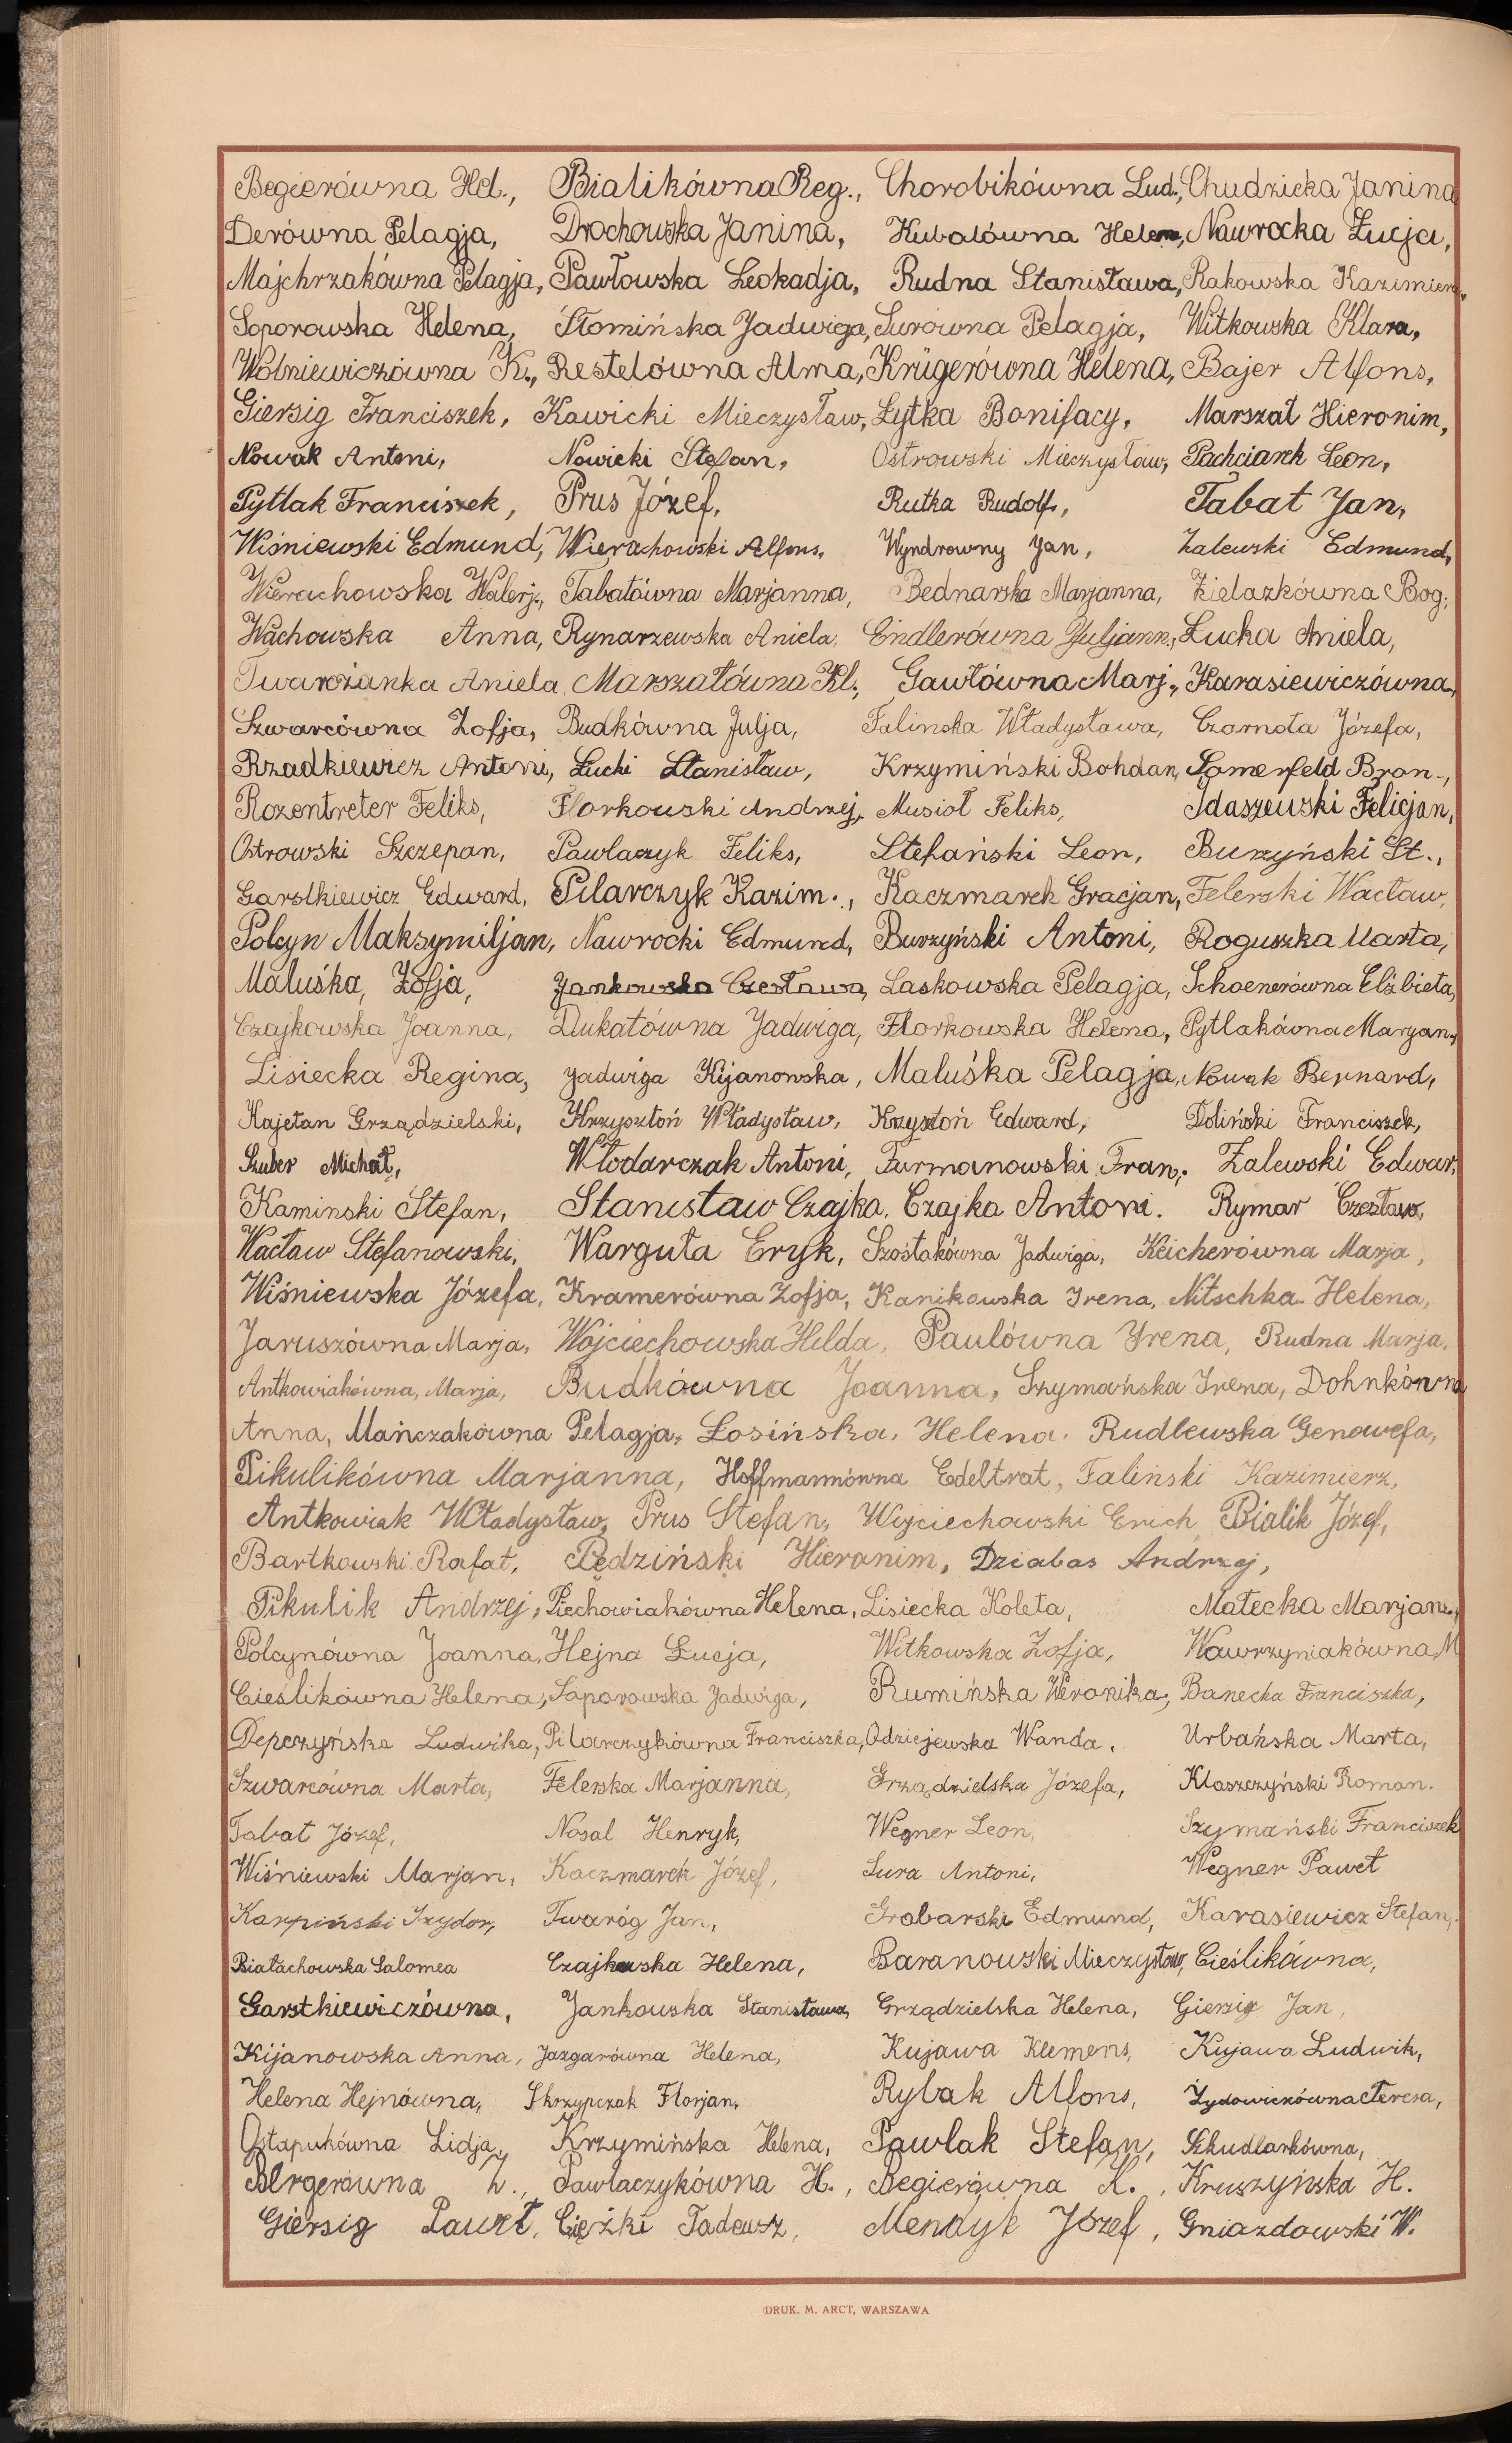 Begierówna Hel., Bialikówna Reg., Chorobikówna Lud., Chudzicka Janina
Derówna Pelagja, Drochowska Janina, Kubalówna Helena, Nawrocka Łucja,
Majchrzakówna Pelagja, Pawłowska Leokadja, Rudna Stanisława, Rakowska Kazimiera,
Soporowska Helena, Słomińska Jadwiga, Surówna Pelagja, Witkowska Klara,
Wolniewiczówna K., Restelówna Alma, Krügerówna Helena, Bajer Alfons,
Giersig Franciszek, Kawicki Mieczysław, Łytka Bonifacy, Marszał Hieronim,
Nowak Antoni, Nowicki Stefan, Ostrowski Mieczysław, Pachciarek Leon,
Pytlak Franciszek, Prus Józef, Rutka Rudolf, Tabat Jan,
Wiśniewski Edmund, Wierachowski Alfons, Wyndrowny Jan, Zalewski Edmund,
Wierachowska Walerj., Tabatówna Marjanna, Bednarska Marjanna, Zielazkówna Bog.,
Wachowska Anna, Rynarzewska Aniela, Endlerówna Juljann., Łucka Aniela,
Twarożanka Aniela, Marszałówna Kl., Gawłówna Marj., Karasiewiczówna,
Szwarcówna Zofja, Budkówna Julja, Falinska Władysława, Czarnota Józefa,
Rzadkiewicz Antoni, Łucki Stanisław, Krzymiński Bohdan, Somerfeld Bron.,
Rozentreter Feliks, Florkowski Andrzej, Musioł Feliks, Idaszewski Felicjan,
Ostrowski Szczepan, Pawlaczyk Feliks, Stefański Leon, Burzyński St.,
Garstkiewicz Edward, Pilarczyk Kazim., Kaczmarek Gracjan, Felerski Wacław,
Polcyn Maksymiljan, Nawrocki Edmund, Burzyński Antoni, Roguszka Marta,
Maluśka, Zofja, Jankowska Czesława, Laskowska Pelagja, Schoenerówna Elżbieta,
Czajkowska Joanna, Dukatówna Jadwiga, Florkowska Helena, Pytlakówna Maryan.,
Lisiecka Regina, Jadwiga Kijanowska, Maluśka Pelagja, Nowak Bernard,
Kajetan Grządzielski, Krzysztoń Władysław, Krzysztoń Edward, Doliński Franciszek,
Szuber Michał, Włodarczak Antoni, Furmanowski Fran., Zalewski Edwar.
Kaminski Stefan, Stanisław Czajka, Czajka Antoni. Rymar Czesław,
Wacław Stefanowski, Warguta Eryk, Szostakówna Jadwiga, Keicherówna Marja,
Wiśniewska Józefa, Kramerówna Zofja, Kanikowska Irena, Nitschka Helena,
Jaruszówna Marja, Wojciechowska Helda, Paulówna Irena, Rudna Marja,
Antkowiakówna, Marja, Budkówna Joanna, Szymańska Irena, Dohnkówna
Anna, Mańczakówna Pelagja, Łosińska, Helena, Rudlewska Genowefa,
Pikulikówna Marjanna, Hoffmannówna Edeltrat, Faliński Kazimierz,
Antkowiak Władysław, Prus Stefan, Wojciechowski Erich, Bialik Józef,
Bartkowski Rafał, Pędziński Hieronim, Działas Andrzej,
Pikulik Andrzej, Piechowiakówna Helena, Lisiecka Koleta, Małecka Marjann.,
Polcynówna Joanna, Hejna Łucja, Witkowska Zofja, Wawrzyniakówna M
Cieślikówna Helena, Soporowska Jadwiga, Rumińska Weronika, Banecka Franciszka,
Depczyńska Ludwika, Pilarczykówna Franciszka, Odziejewska Wanda, Urbańska Marta,
Szwarcówna Marta, Felerska Marjanna, Grządzielska Józefa, Klaszczyński Roman.
Tabat Józef, Nosal Henryk, Wegner Leon, Szymański Franciszek
Wiśniewski Marjan, Kaczmarek Józef, Sura Antoni, Wegner Paweł
Karpiński Izydor, Twaróg Jan, Grabarski Edmund, Karasiewicz Stefan,
Białachowska Salomea Czajkowska Helena, Baranowski Mieczysław, Cieślikówna,
Garstkiewiczówna, Jankowska Stanisława, Grządzielska Helena, Giersig Jan,
Kijanowska Anna, Jazgarówna Helena, Kujawa Klemens, Kujawa Ludwik,
Helena Hejnówna, Skrzypczak Florjan, Rybak Alfons, Żydowiczówna Teresa,
Ostapukówna Lidja, Krzymińska Helena, Pawlak Stefan, Szkudlarkówna,
Bergerówna Z., Pawlaczykówna H., Begierówna K., Kruszyńska H.
Giersig Paweł, Ciężki Tadeusz, Mendyk Józef, Gniazdowski W.
DRUK. M. ARCT, WARSZAWA